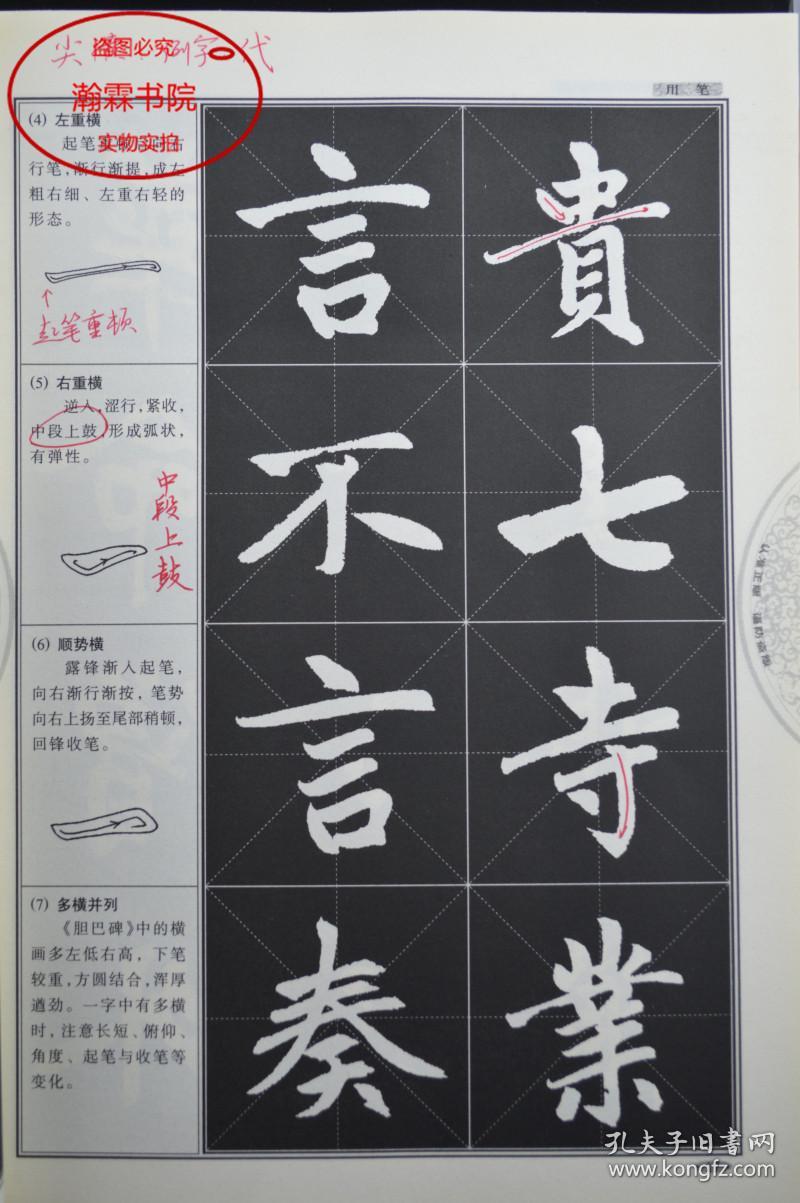 盗图必究
尖 例字 代
瀚霖书院
实物实拍
用 笔
(4) 左重横
起笔
行笔,渐行渐提,成左
粗右细、左重右轻的
形态。
起笔重顿
言 貴
(5) 右重横
逆入,涩行,紧收,
中段上鼓,形成弧状,
有弹性。
中段上鼓
不 七
(6) 顺势横
露锋渐入起笔,
向右渐行渐按,笔势
向右上扬至尾部稍顿,
回锋收笔。
言 寺
(7) 多横并列
《胆巴碑》中的横
画多左低右高,下笔
较重,方圆结合,浑厚
遒劲。一字中有多横
时,注意长短、俯仰、
角度、起笔与收笔等
变化。
奏 業
孔夫子旧書网
www.kongfz.com